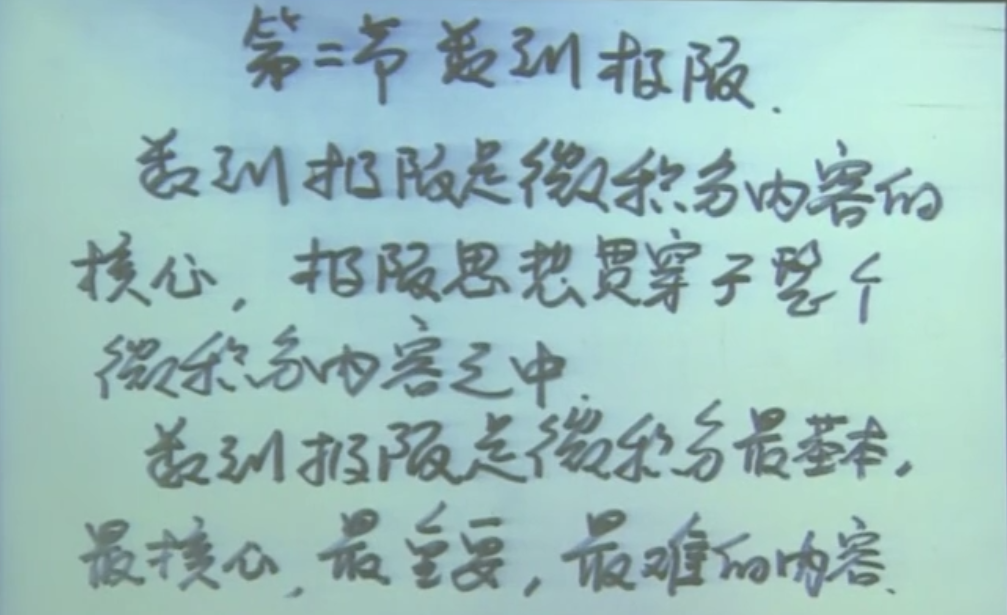 第二节 数列极限.
数列极限是微积分内容的
核心, 极限思想贯穿于整个
微积分内容之中.
数列极限是微积分最基本,
最核心, 最重要, 最难的内容.